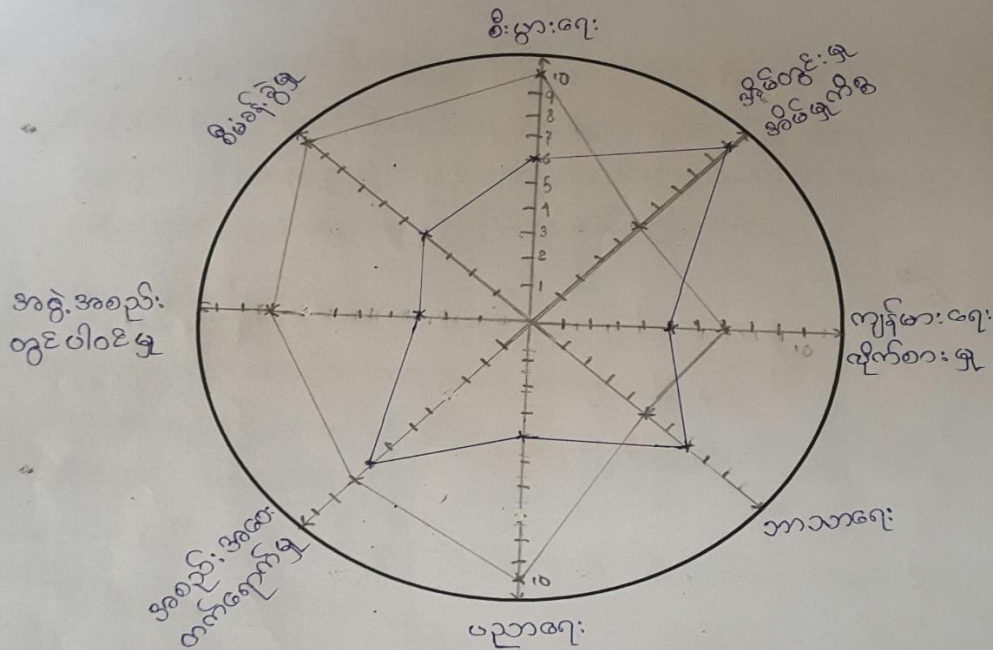 စီးပွားရေး
အိမ်တွင်းမှု
အိမ်မှုကိစ္စ
ကျန်းမာရေး
လိုက်စားမှု
ဘာသာရေး
ပညာရေး
အစည်းအဝေး
တက်ရောက်မှု
အဖွဲ့အစည်း
တွင်ပါဝင်မှု
စီမံခန့်ခွဲမှု
10
9
8
7
6
5
4
3
2
1
10
10